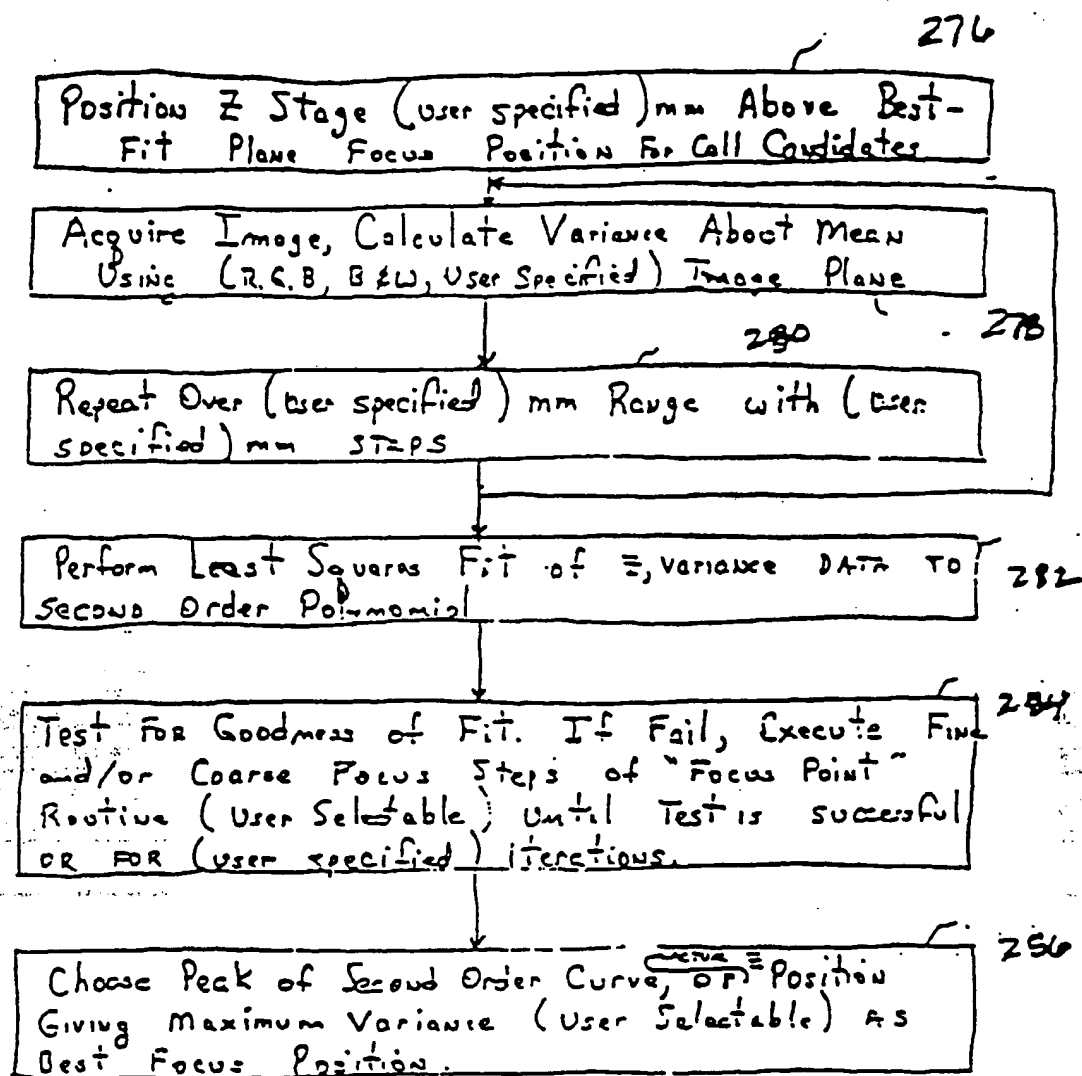 276
Position Z Stage (user specified) mm Above Best-
Fit Plane Focus Position For Cell Candidates
Acquire Image, Calculate Variance About Mean
Using (R.G.B, B &W, User Specified) Image Plane
278
280
Repeat Over (user specified) mm Range with (user
specified) mm STEPS
Perform Least Squares Fit of Z, variance DATA TO
Second Order Polynomial
282
284
Test FOR Goodness of Fit. If Fail, Execute Fine
and/or Coarse Focus Steps of "Focus Point"
Routine (User Selectable) Until Test is successful
OR FOR (user specified) iterations.
Choose Peak of Second Order Curve, OR Z Position
Giving Maximum Variance (User Selectable) AS
Best Focus Position.